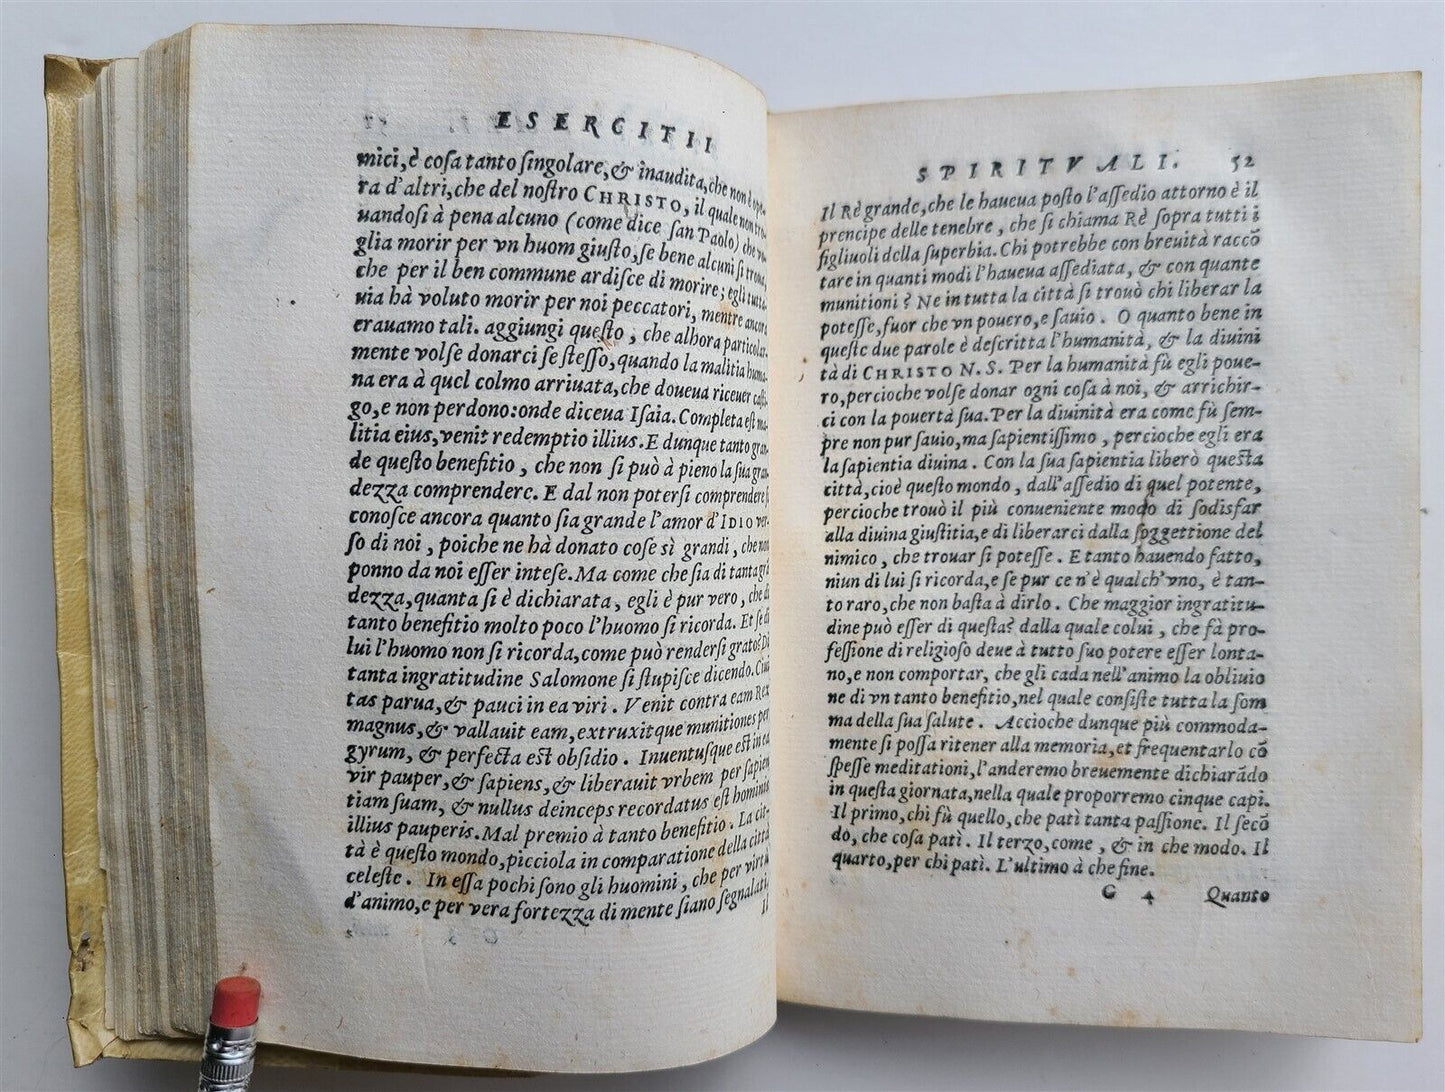 ESERCITII
mici, è coſa tanto ſingolare, & inaudita, che non è ope-
ra d'altri, che del noſtro CHRISTO, il quale non tro-
uandoſi à pena alcuno (come dice ſan Paolo) che vo-
glia morir per vn huom giuſto, ſe bene alcuni ſi troua,
che per il ben commune ardiſce di morire; egli tutta-
uia hà voluto morir per noi peccatori, mentre ancora
erauamo tali. aggiungi queſto, che alhora particolar-
mente volſe donarci ſe ſteſſo, quando la malitia huma-
na era à quel colmo arriuata, che doueua riceuer caſti-
go, e non perdono: onde diceua Iſaia. Completa eſt ma-
litia eius, venit redemptio illius. E dunque tanto gran-
de queſto benefitio, che non ſi può à pieno la ſua gran-
dezza comprendere. E dal non poterſi comprendere ſi
conoſce ancora quanto ſia grande l'amor d'IDIO ver-
ſo di noi, poiche ne hà donato coſe sì grandi, che non
ponno da noi eſſer inteſe. Ma come che ſia di tanta grā
dezza, quanta ſi è dichiarata, egli è pur vero, che di
tanto benefitio molto poco l'huomo ſi ricorda. Et ſe di
lui l'huomo non ſi ricorda, come può renderſi grato? Di
tanta ingratitudine Salomone ſi ſtupiſce dicendo. Ciui
tas parua, & pauci in ea viri. Venit contra eam Rex
magnus, & vallauit eam, extruxitque munitiones per
gyrum, & perfecta eſt obſidio. Inuentusque eſt in ea
vir pauper, & ſapiens, & liberauit vrbem per ſapien
tiam ſuam, & nullus deinceps recordatus eſt hominis
illius pauperis. Mal premio à tanto benefitio. La cit-
tà è queſto mondo, picciola in comparatione della città
celeſte. In eſſa pochi ſono gli huomini, che per virtù
d'animo, e per vera fortezza di mente ſiano ſegnalati.
Il
SPIRITVALI. 52
Il Rè grande, che le haueua poſto l'aſſedio attorno è il
prencipe delle tenebre, che ſi chiama Rè ſopra tutti i
figliuoli della ſuperbia. Chi potrebbe con breuità raccō
tare in quanti modi l'haueua aſſediata, & con quante
munitioni? Ne in tutta la città ſi trouò chi liberar la
poteſſe, fuor che vn pouero, e ſauio. O quanto bene in
queſte due parole è deſcritta l'humanità, & la diuini
tà di CHRISTO N. S. Per la humanità fù egli poue-
ro, percioche volſe donar ogni coſa à noi, & arrichir-
ci con la pouertà ſua. Per la diuinità era come fù ſem-
pre non pur ſauio, ma ſapientiſſimo, percioche egli era
la ſapientia diuina. Con la ſua ſapientia liberò queſta
città, cioè queſto mondo, dall'aſſedio di quel potente,
percioche trouò il più conueniente modo di ſodisfar
alla diuina giuſtitia, e di liberarci dalla ſoggettione del
nimico, che trouar ſi poteſſe. E tanto hauendo fatto,
niun di lui ſi ricorda, e ſe pur ce n'è qualch'vno, è tan-
to raro, che non baſta à dirlo. Che maggior ingratitu-
dine può eſſer di queſta? dalla quale colui, che fà pro-
feſſione di religioſo deue à tutto ſuo potere eſſer lonta-
no, e non comportar, che gli cada nell'animo la obliuio
ne di vn tanto benefitio, nel quale conſiſte tutta la ſom
ma della ſua ſalute. Accioche dunque più commoda-
mente ſi poſſa ritener alla memoria, et frequentarlo cō
ſpeſſe meditationi, l'anderemo breuemente dichiarādo
in queſta giornata, nella quale proporremo cinque capi.
Il primo, chi fù quello, che patì tanta paſſione. Il ſecō
do, che coſa patì. Il terzo, come, & in che modo. Il
quarto, per chi patì. L'ultimo à che fine.
G 4 Quanto